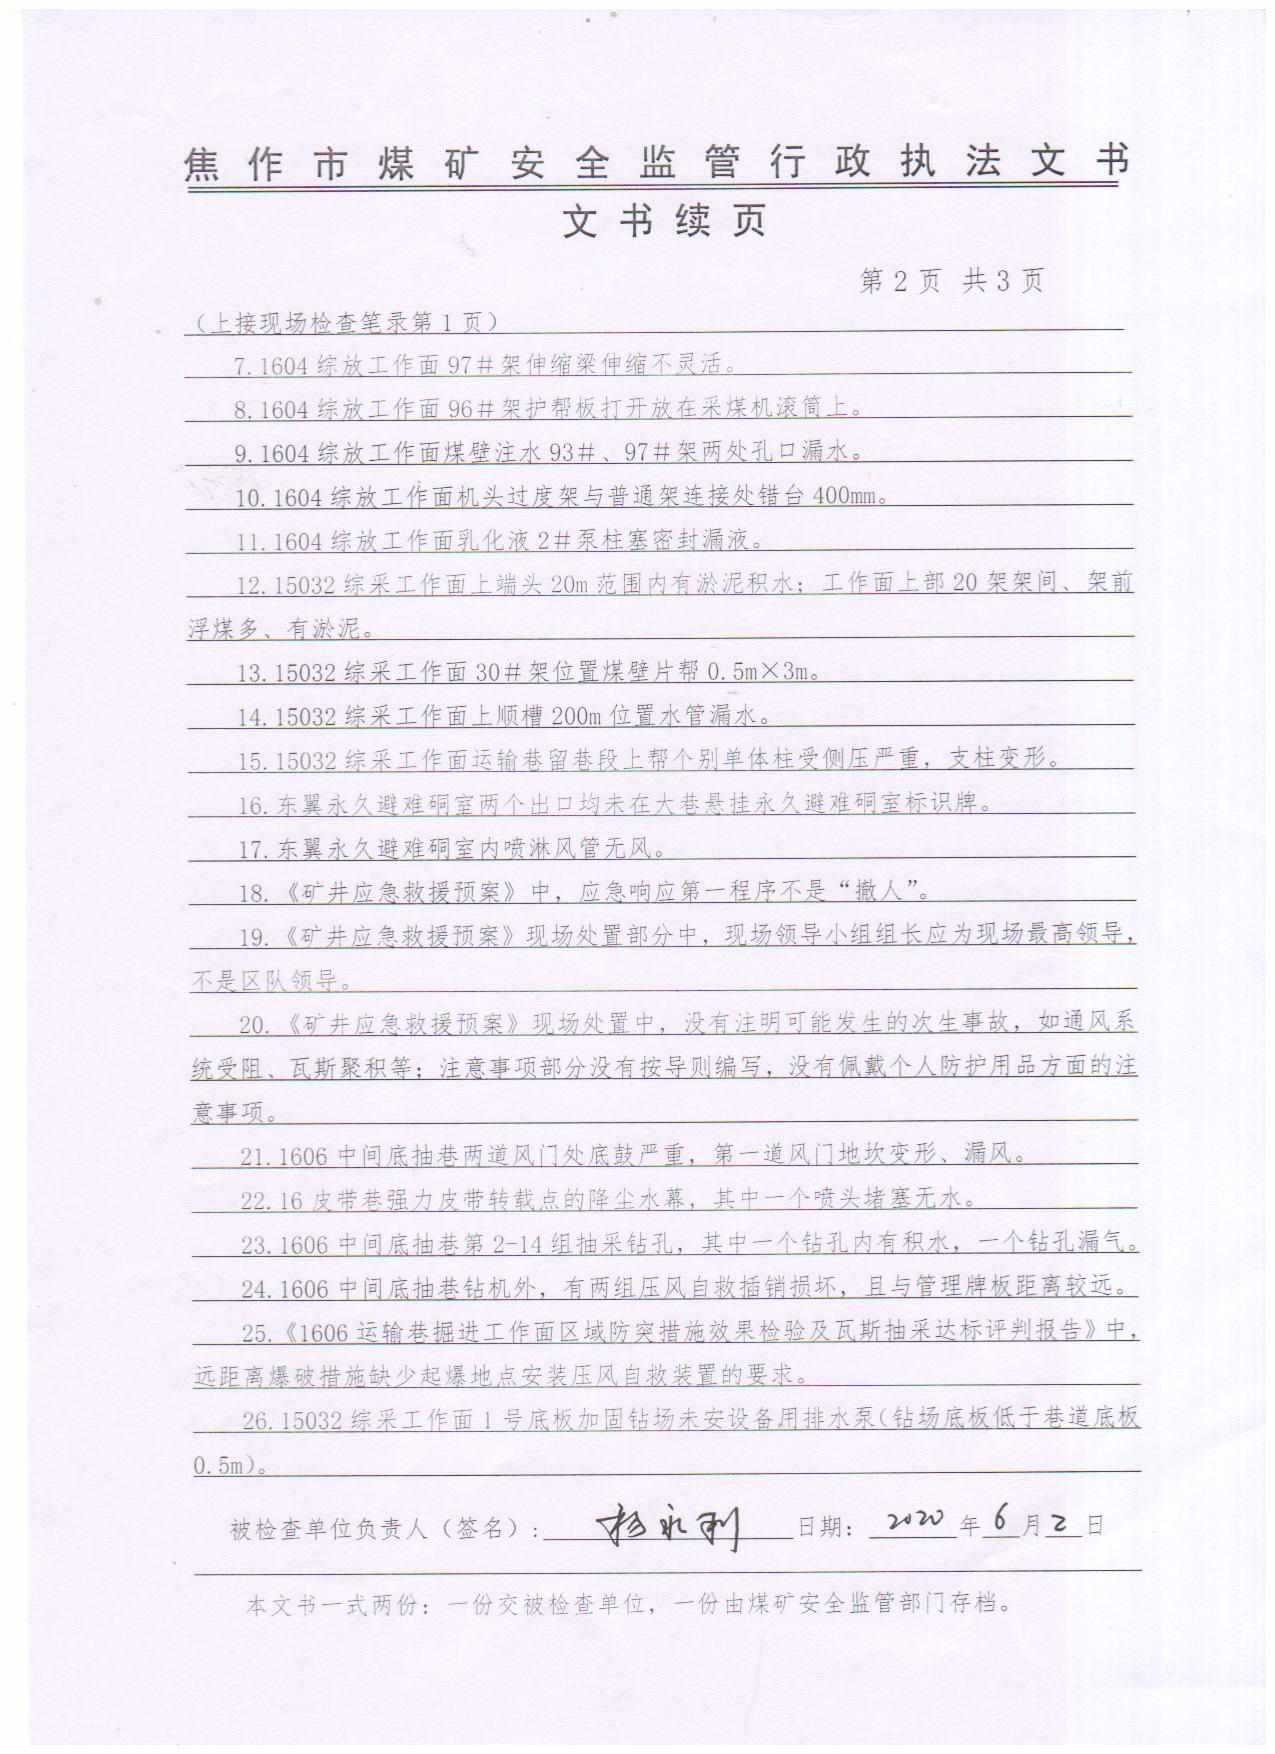 焦作市煤矿安全监管行政执法文书
文书续页
第2页 共3页
（上接现场检查笔录第1页）
7.1604综放工作面97#架伸缩梁伸缩不灵活。
8.1604综放工作面96#架护帮板打开放在采煤机滚筒上。
9.1604综放工作面煤壁注水93#、97#架两处孔口漏水。
10.1604综放工作面机头过度架与普通架连接处错台400mm。
11.1604综放工作面乳化液2#泵柱塞密封漏液。
12.15032综采工作面上端头20m范围内有淤泥积水；工作面上部20架架间、架前
浮煤多、有淤泥。
13.15032综采工作面30#架位置煤壁片帮0.5m×3m。
14.15032综采工作面上顺槽200m位置水管漏水。
15.15032综采工作面运输巷留巷段上帮个别单体柱受侧压严重，支柱变形。
16.东翼永久避难硐室两个出口均未在大巷悬挂永久避难硐室标识牌。
17.东翼永久避难硐室内喷淋风管无风。
18.《矿井应急救援预案》中，应急响应第一程序不是“撤人”。
19.《矿井应急救援预案》现场处置部分中，现场领导小组组长应为现场最高领导，
不是区队领导。
20.《矿井应急救援预案》现场处置中，没有注明可能发生的次生事故，如通风系
统受阻、瓦斯聚积等；注意事项部分没有按导则编写，没有佩戴个人防护用品方面的注
意事项。
21.1606中间底抽巷两道风门处底鼓严重，第一道风门地坎变形、漏风。
22.16皮带巷强力皮带转载点的降尘水幕，其中一个喷头堵塞无水。
23.1606中间底抽巷第2-14组抽采钻孔，其中一个钻孔内有积水，一个钻孔漏气。
24.1606中间底抽巷钻机外，有两组压风自救插销损坏，且与管理牌板距离较远。
25.《1606运输巷掘进工作面区域防突措施效果检验及瓦斯抽采达标评判报告》中，
远距离爆破措施缺少起爆地点安装压风自救装置的要求。
26.15032综采工作面1号底板加固钻场未安设备用排水泵（钻场底板低于巷道底板
0.5m）。
被检查单位负责人（签名）：杨永利 日期：2020年6月2日
本文书一式两份：一份交被检查单位，一份由煤矿安全监管部门存档。